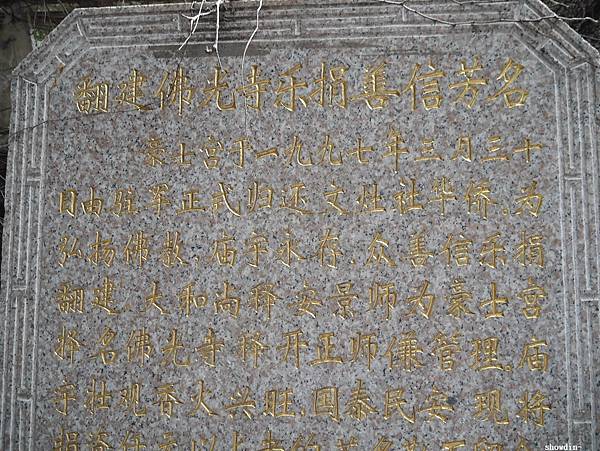 翻建佛光寺乐捐善信芳名
豪士宫于一九九七年三月三十
日由驻军正式归还文灶社华侨,为
弘扬佛教,庙宇永存,众善信乐捐
翻建,大和尚释安景师为豪士宫
择名佛光寺释开正师傅管理,庙
宇壮观香火兴旺,国泰民安现将
捐资
showdin-